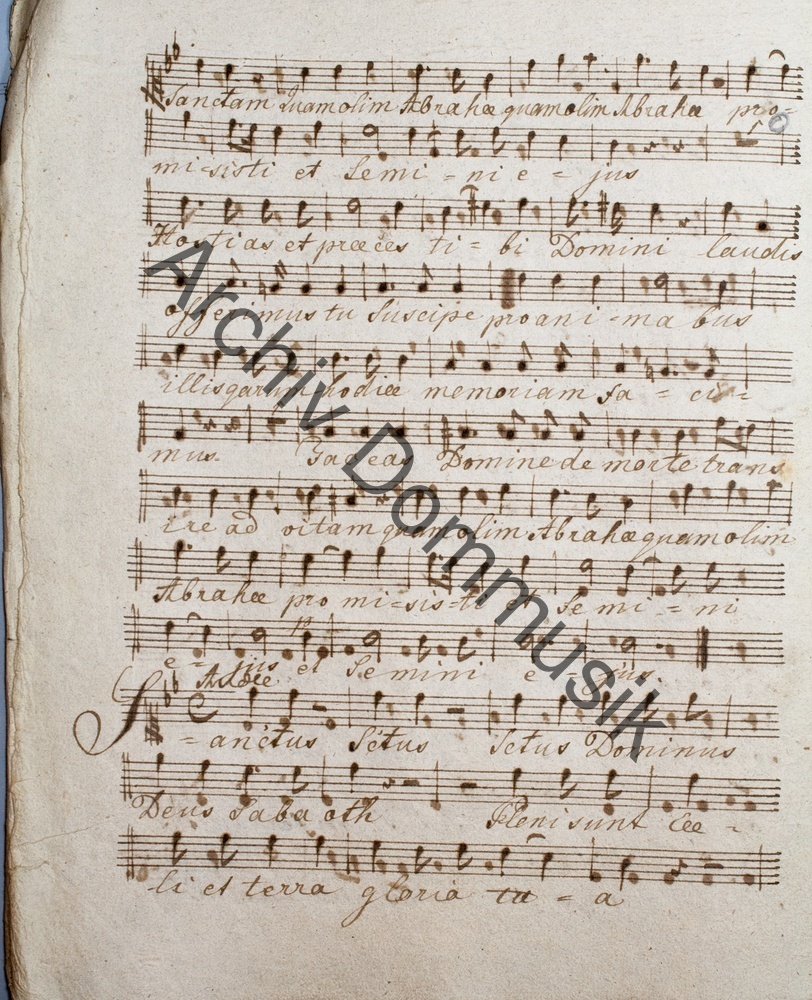 Sanctam Quam olim Abrahæ quam olim Abrahæ pro-
mi-sisti et Semi-ni e-jus
Hostias et præces ti-bi Domini laudis
offerimus tu Suscipe pro ani-ma bus
illis quarum hodiæ memoriam fa-ci-
mus Domine de morte trans
ire ad vitam quam olim Abrahæ quam olim
Abrahæ pro mi-sis-ti et Se mi-ni
p
e-jus et Semini e-jus.
Sanctus Sctus Sctus Dominus
Deus Saba oth Pleni sunt cœ-
li et terra gloria tu-a
Archiv Dommusik